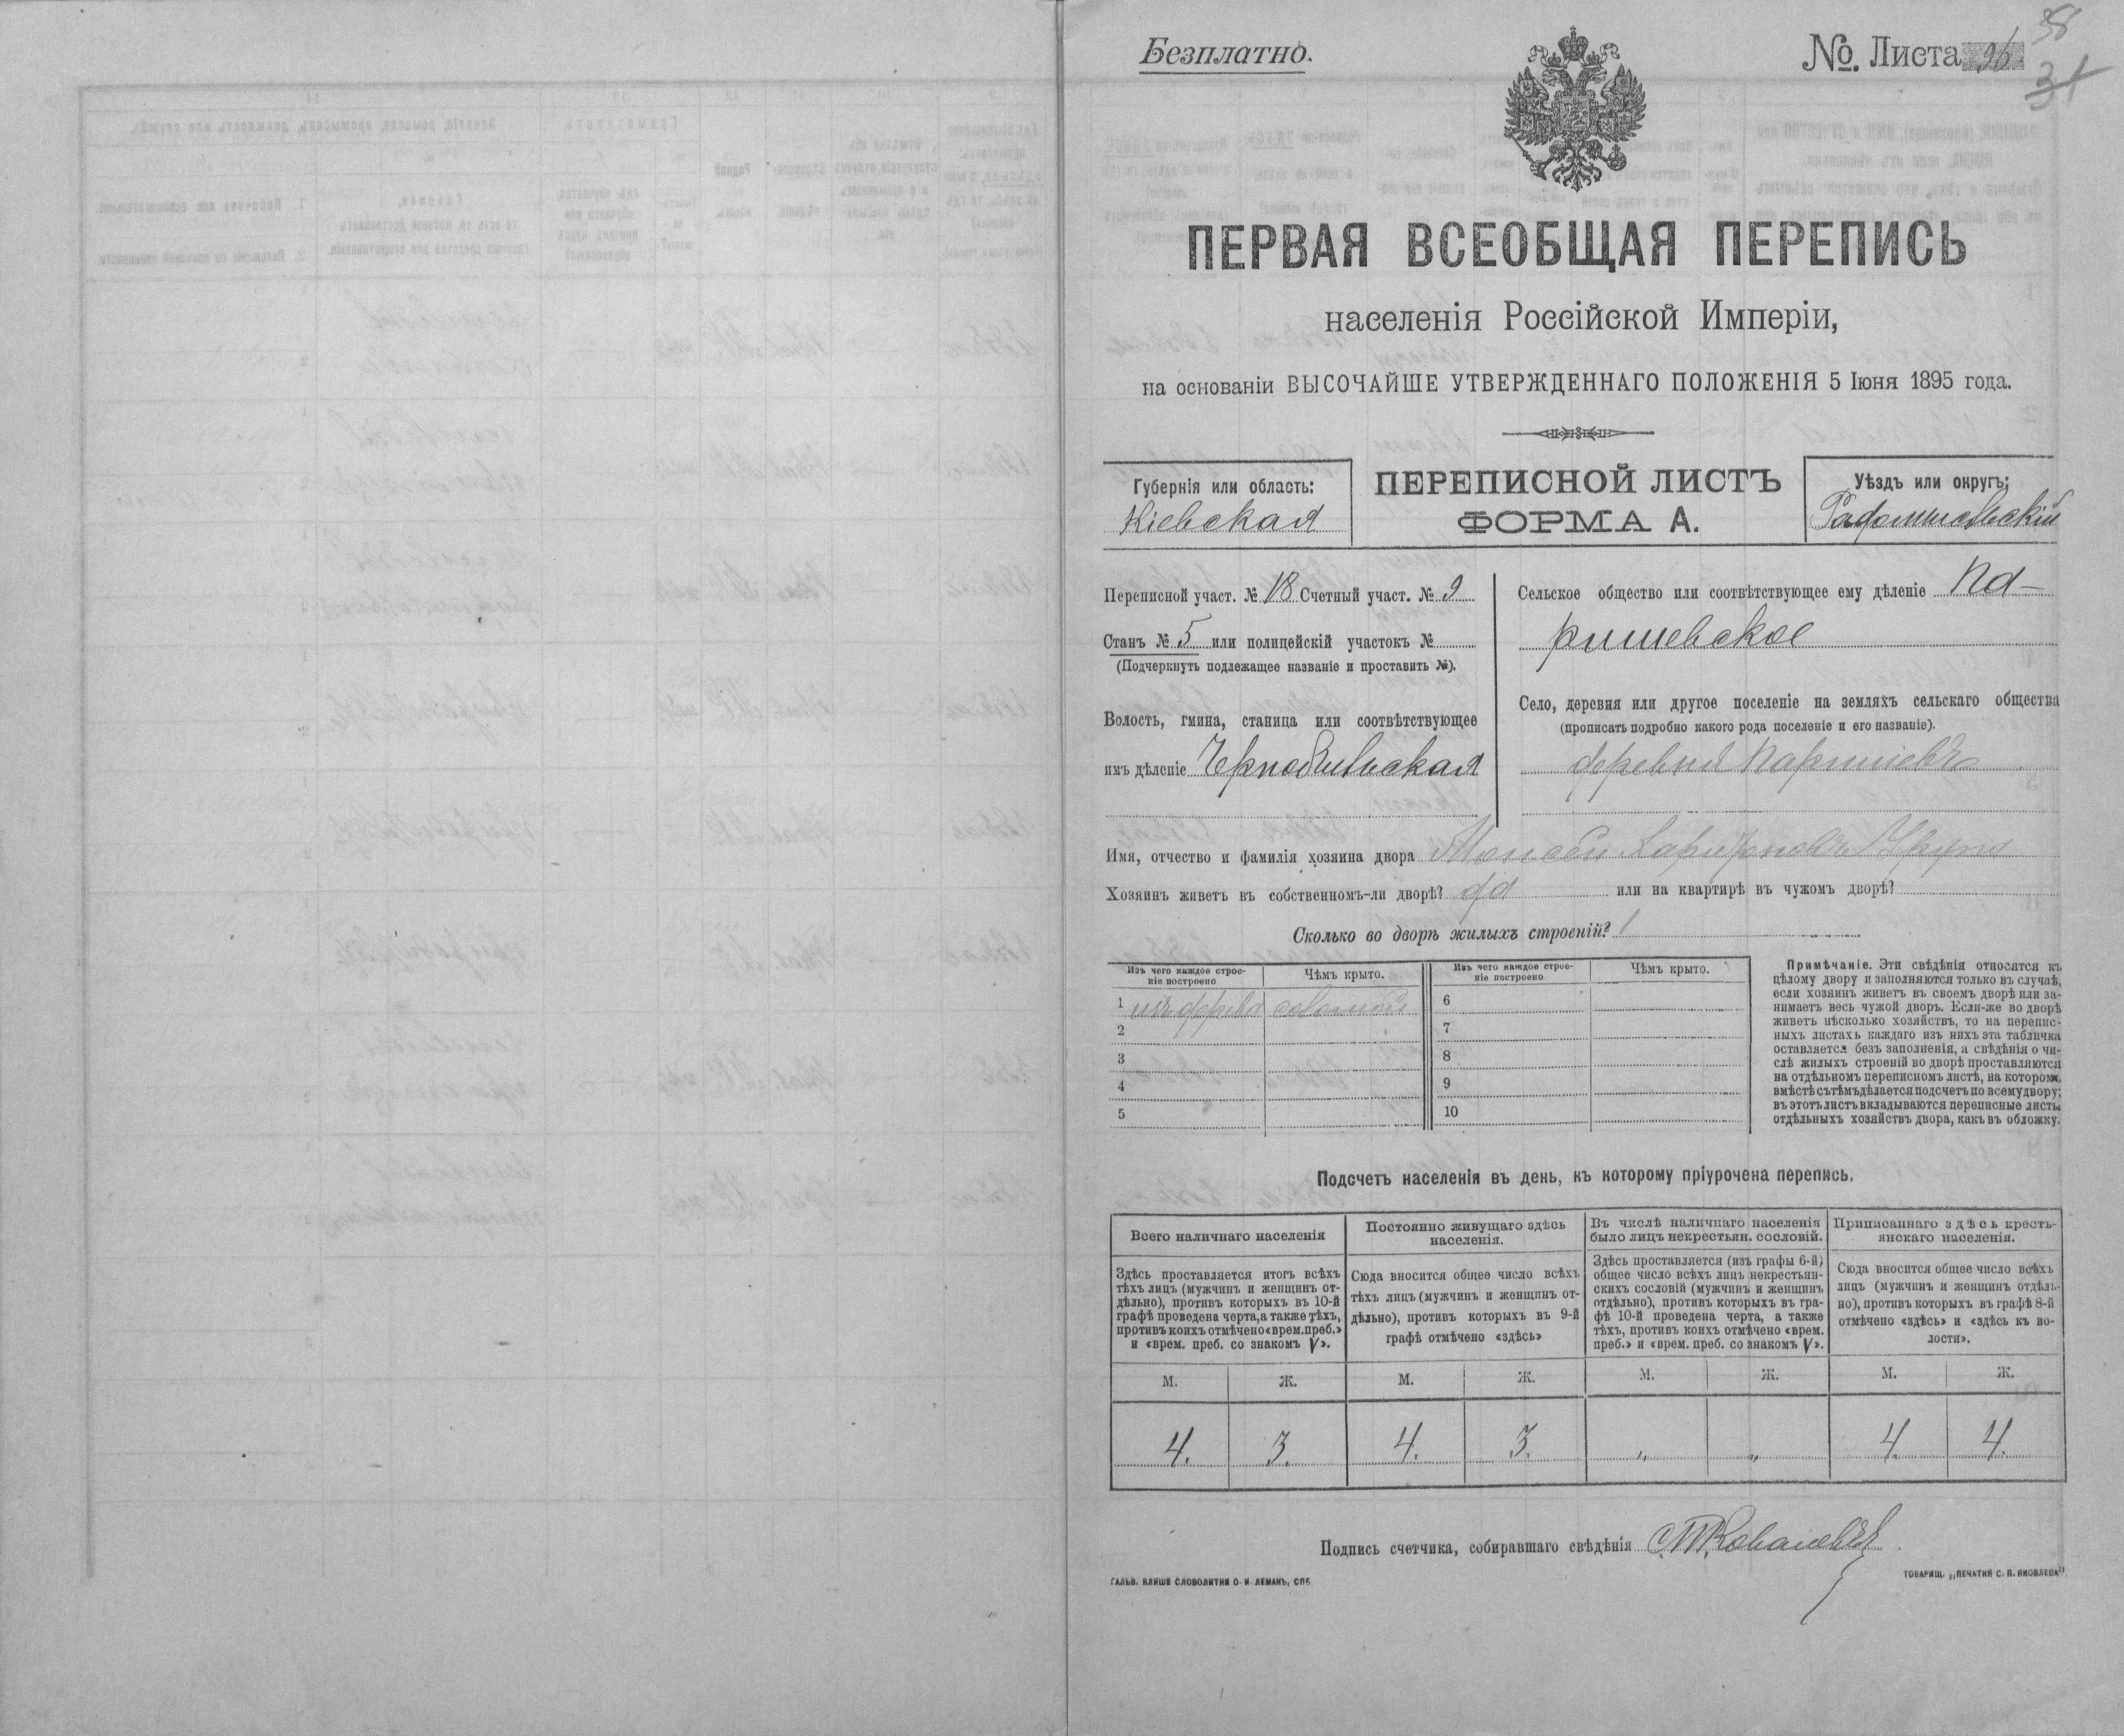 Безплатно.
№. Листа 96
38
31
ПЕРВАЯ ВСЕОБЩАЯ ПЕРЕПИСЬ
населенія Россійской Имперіи,
на основаніи ВЫСОЧАЙШЕ УТВЕРЖДЕННАГО ПОЛОЖЕНІЯ 5 Іюня 1895 года.
Губернія или область:
Кіевская
ПЕРЕПИСНОЙ ЛИСТЪ
ФОРМА А.
Уѣздъ или округъ:
Радомысльскій
Переписной участ. № 18 Счетный участ. № 9
Станъ № 5 или полицейскій участокъ №
(Подчеркнуть подлежащее названіе и проставить №).
Волость, гмина, станица или соотвѣтствующее
имъ дѣленіе Чернобыльская
Сельское общество или соотвѣтствующее ему дѣленіе Па-
ришевское
Село, деревня или другое поселеніе на земляхъ сельскаго общества
(прописать подробно какого рода поселеніе и его названіе).
деревня Паришевъ
Имя, отчество и фамилія хозяина двора Моисей Харитоновъ
Хозяинъ живетъ въ собственномъ-ли дворѣ? да или на квартирѣ въ чужомъ дворѣ?
Сколько во дворѣ жилыхъ строеній? 1
Изъ чего каждое строе-
ніе построено
Чѣмъ крыто.
Изъ чего каждое строе-
ніе построено
Чѣмъ крыто.
1 изъ дерева соломой
2
3
4
5
6
7
8
9
10
Примѣчаніе. Эти свѣдѣнія относятся къ
цѣлому двору и заполняются только въ случаѣ,
если хозяинъ живетъ въ своемъ дворѣ или за-
нимаетъ весь чужой дворъ. Если-же во дворѣ
живетъ нѣсколько хозяйствъ, то на перепис-
ныхъ листахъ каждаго изъ нихъ эта табличка
оставляется безъ заполненія, а свѣдѣнія о чи-
слѣ жилыхъ строеній во дворѣ проставляются
на отдѣльномъ переписномъ листѣ, на которомъ
вмѣстѣ съ тѣмъ дѣлается подсчетъ по всему двору;
въ этотъ листъ вкладываются переписные листы
отдѣльныхъ хозяйствъ двора, какъ въ обложку.
Подсчетъ населенія въ день, къ которому пріурочена перепись.
Всего наличнаго населенія
Постоянно живущаго здѣсь
населенія.
Въ числѣ наличнаго населенія
было лицъ некрестьян. сословій.
Приписаннаго здѣсь кресть-
янскаго населенія.
Здѣсь проставляется итогъ всѣхъ
тѣхъ лицъ (мужчинъ и женщинъ от-
дѣльно), противъ которыхъ въ 10-й
графѣ проведена черта, а также тѣхъ,
противъ коихъ отмѣчено «врем. преб.»
и «врем. преб. со знакомъ V».
Сюда вносится общее число всѣхъ
тѣхъ лицъ (мужчинъ и женщинъ от-
дѣльно), противъ которыхъ въ 9-й
графѣ отмѣчено «здѣсь»
Здѣсь проставляется (изъ графы 6-й)
общее число всѣхъ лицъ некрестьян-
скихъ сословій (мужчинъ и женщинъ
отдѣльно), противъ которыхъ въ гра-
фѣ 10-й проведена черта, а также
тѣхъ, противъ коихъ отмѣчено «врем.
преб.» и «врем. преб. со знакомъ V».
Сюда вносится общее число всѣхъ
лицъ (мужчинъ и женщинъ отдѣль-
но), противъ которыхъ въ графѣ 8-й
отмѣчено «здѣсь» и «здѣсь къ во-
лости».
М. Ж. М. Ж. М. Ж. М. Ж.
4. 3. 4. 3. „ „ 4. 4.
Подпись счетчика, собиравшаго свѣдѣнія
ГАЛЬВ. КЛИШЕ СЛОВОЛИТНИ О. И. ЛЕМАНЪ, СПБ.
ТОВАРИЩ. „ПЕЧАТНЯ С. П. ЯКОВЛЕВА"